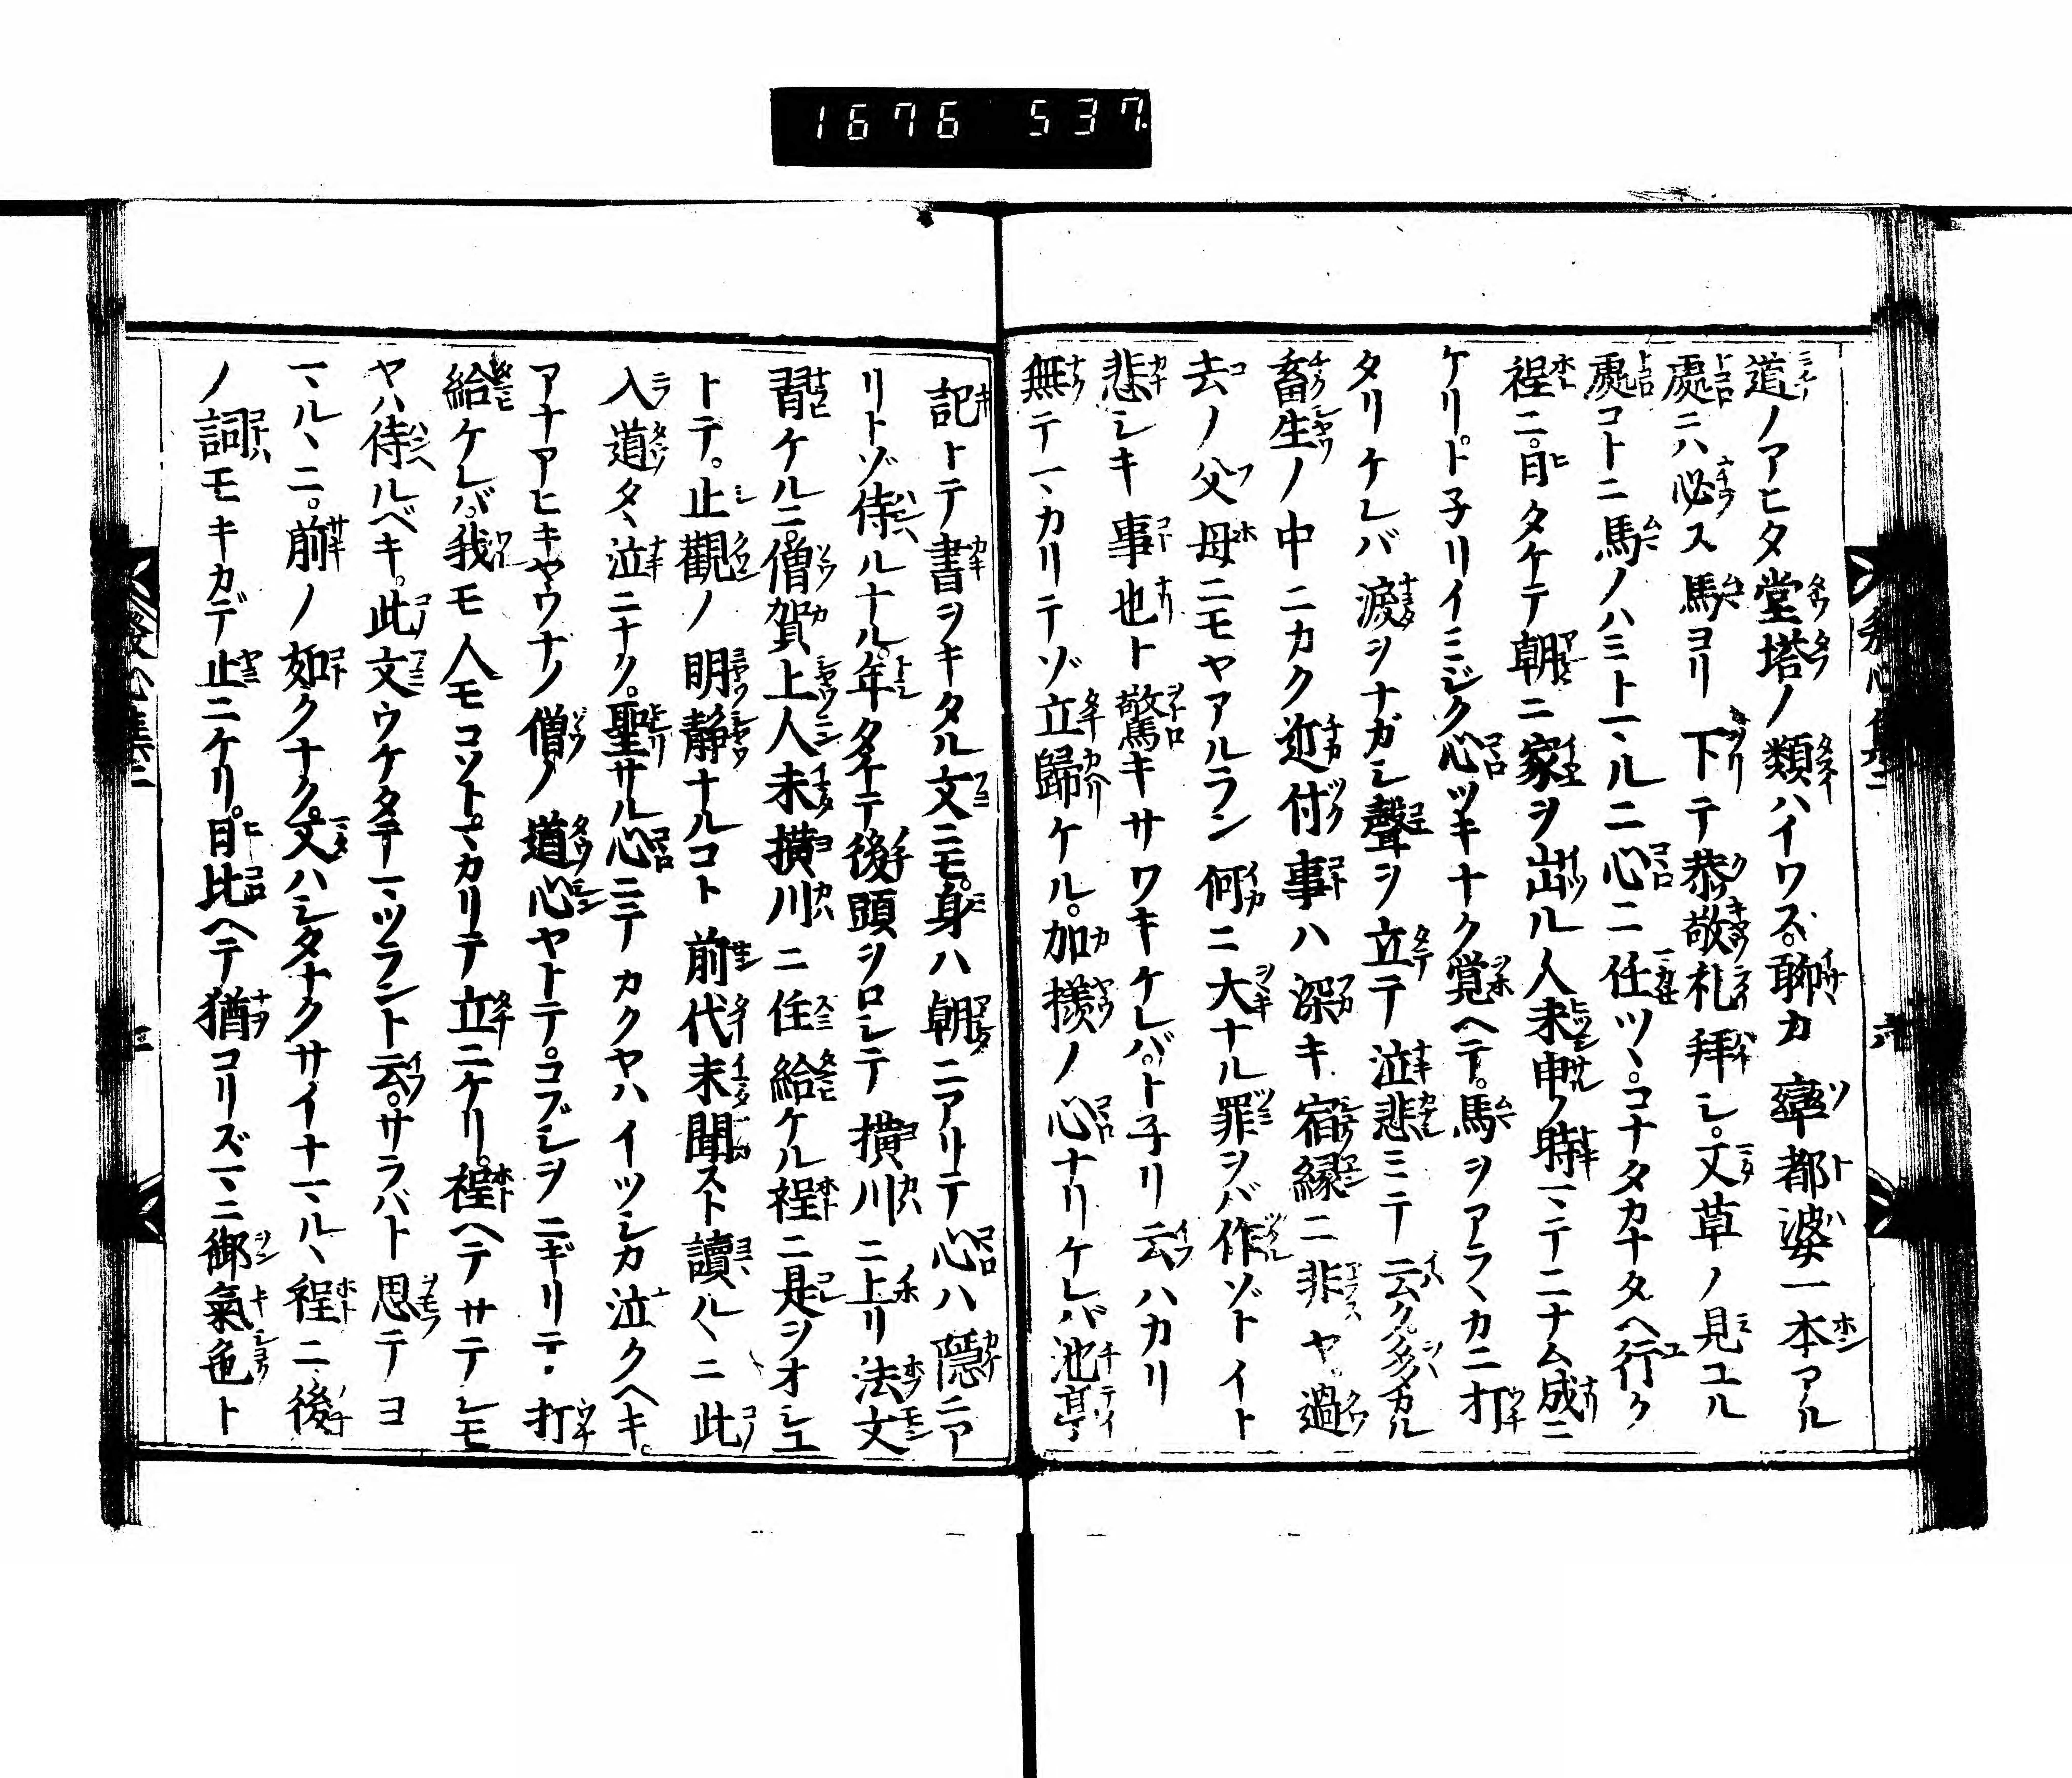 1676 537
道ノアヒタ堂塔ノ類ハイワス。聊カ率都婆一本アル
處ニハ必ス馬ヨリ下テ恭敬礼拜シ。又草ノ見ユル
處コトニ馬ノハミトヽマルニ心ニ任ツヽ。コナタカナタヘ行ク
程ニ。日タケテ朝ニ家ヲ出ル人未申ノ時マテニナム成ニ
ケリ。ト子リイミジク心ツキナク覚ヘテ。馬ヲアラヽカニ打
タリケレバ涙ヲナガシ聲ヲ立テ泣悲ミテ云ク多カル
畜生ノ中ニカク近付事ハ深キ宿縁ニ非ヤ。過
去ノ父母ニモヤアルラン何ニ大ナル罪ヲバ作ゾトイト
悲シキ事也ト驚キサワキケレバ。ト子リ云ハカリ
無テマカリテゾ立歸ケル。加様ノ心ナリケレバ池亭
記トテ書ヲキタル文ニモ。身ハ朝ニアリテ心ハ隠ニア
リトゾ侍ルナル。年タケテ後頭ヲロシテ横川ニ上リ法文
習ケルニ。僧賀上人未横川ニ住給ケル程ニ是ヲオシユ
トテ。止觀ノ明静ナルコト前代未聞スト讀ルヽニ此
入道タヽ泣ニナク。聖サル心ニテカクヤハイツシカ泣クヘキ。
アナアヒキヤウナノ僧ノ道心ヤトテ。コブシヲニギリテ打
給ケレバ。我モ人モコソトマカリテ立ニケリ。程ヘテサテシモ
ヤハ侍ルベキ。此文ウケタテマツラント云。サラバト思テヨ
マルヽニ。前ノ如クナク。又ハシタナクサイナマルヽ程ニ。後
ノ詞モキカデ止ニケリ。日比ヘテ猶コリズマニ御氣色ト